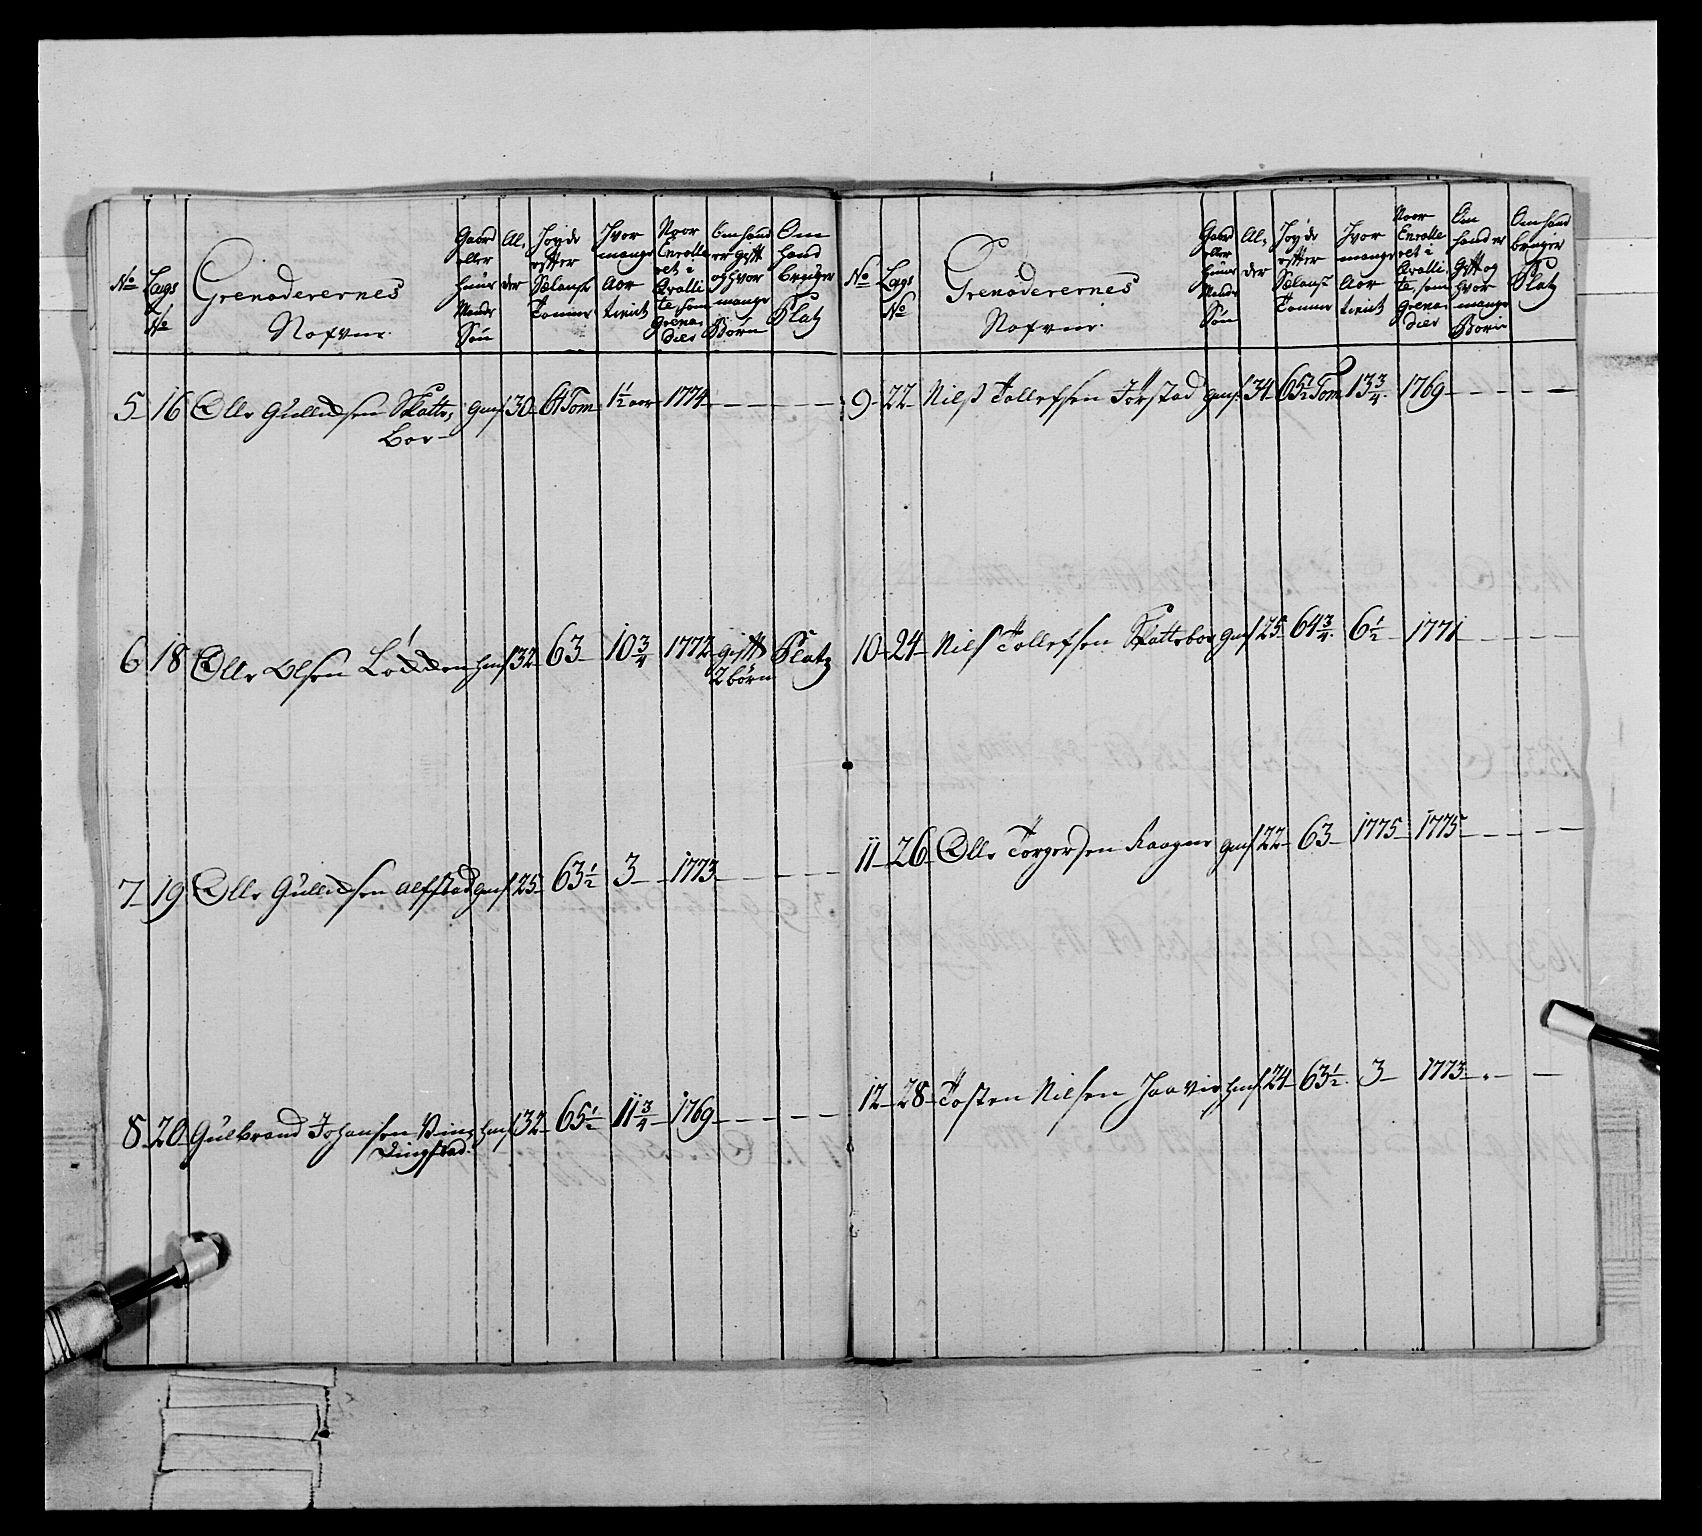 No
Laugs No
Grenaderernes Nafvne.
Gaard eller Huus Mands Søn
Al, der
Høyde efter Sælansk Tommer
Hvor mange Aar tient
Naar Enrolleret i Qvalite, som Grenadeer
Om hand er gift og hvor mange Børn
Om hand bruger Platz
5 16 Olle Gulleichsen Skatte, gms 30 64 Tom 1½ aar 1774 — — —
Boe
6 18 Olle Olsen Lødden hms 32 63 10¾ 1772 gift Platz
2 børn
7 19 Olle Gulleichsen Alfstad gms 25 63½ 3 1773 — — —
8 20 Gulbrand Johansen Ving hms 32 65½ 11¾ 1769 — — —
Vingstad.
No
Laugs No
Grenaderernes Nafvne.
Gaard eller Huus Mands Søn
Al, der
Høyde efter Sælansk Tommer
Hvor mange Aar tient
Naar Enrolleret i Qvalite, som Grenadeer
Om hand er Gift og hvor mange Børn
Om hand bruger Platz
9 22 Nils Tollefsen Jørstad gms 34 65½ Tom 13¾ 1769 — — —
10 24 Nils Tollefsen Skatteboe gms 25 64¾ 6½ 1771 — — —
11 26 Olle Torgersen Kaagne gms 22 63 1775 1775 — — —
12 28 Tosten Nilsen Haavie hms 24 63½ 3 1773 — —